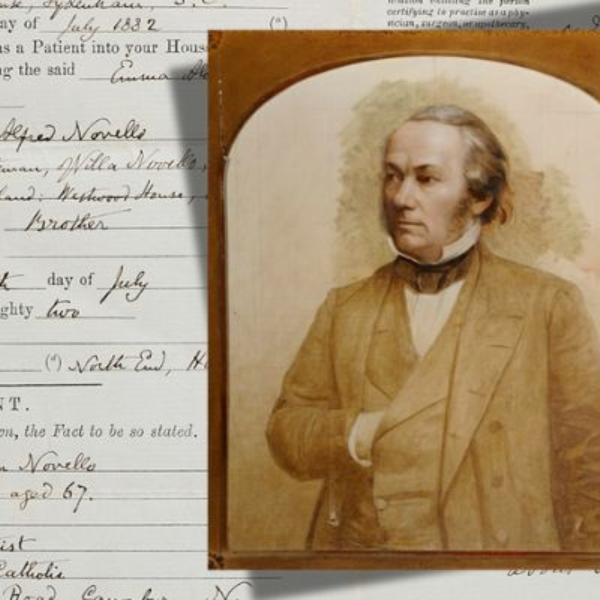 Sydenham, S.E.
ay of July 1882 (a)
as a Patient into your Hous
ng the said Emma
Alfred Novello
eman, Villa Novello,
land: Westwood House,
Brother
day of July
ghty two
(c) North End, H
NT.
on, the Fact to be so stated.
Novello
aged 67.
ist
Catholic
Road, Cam
certifying to practise as a phy-
sician, surgeon, or apothecary,